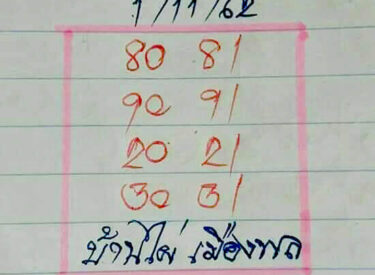 1/11/62
80 81
90 91
20 21
30 31
บ้านไผ่ เมืองพล